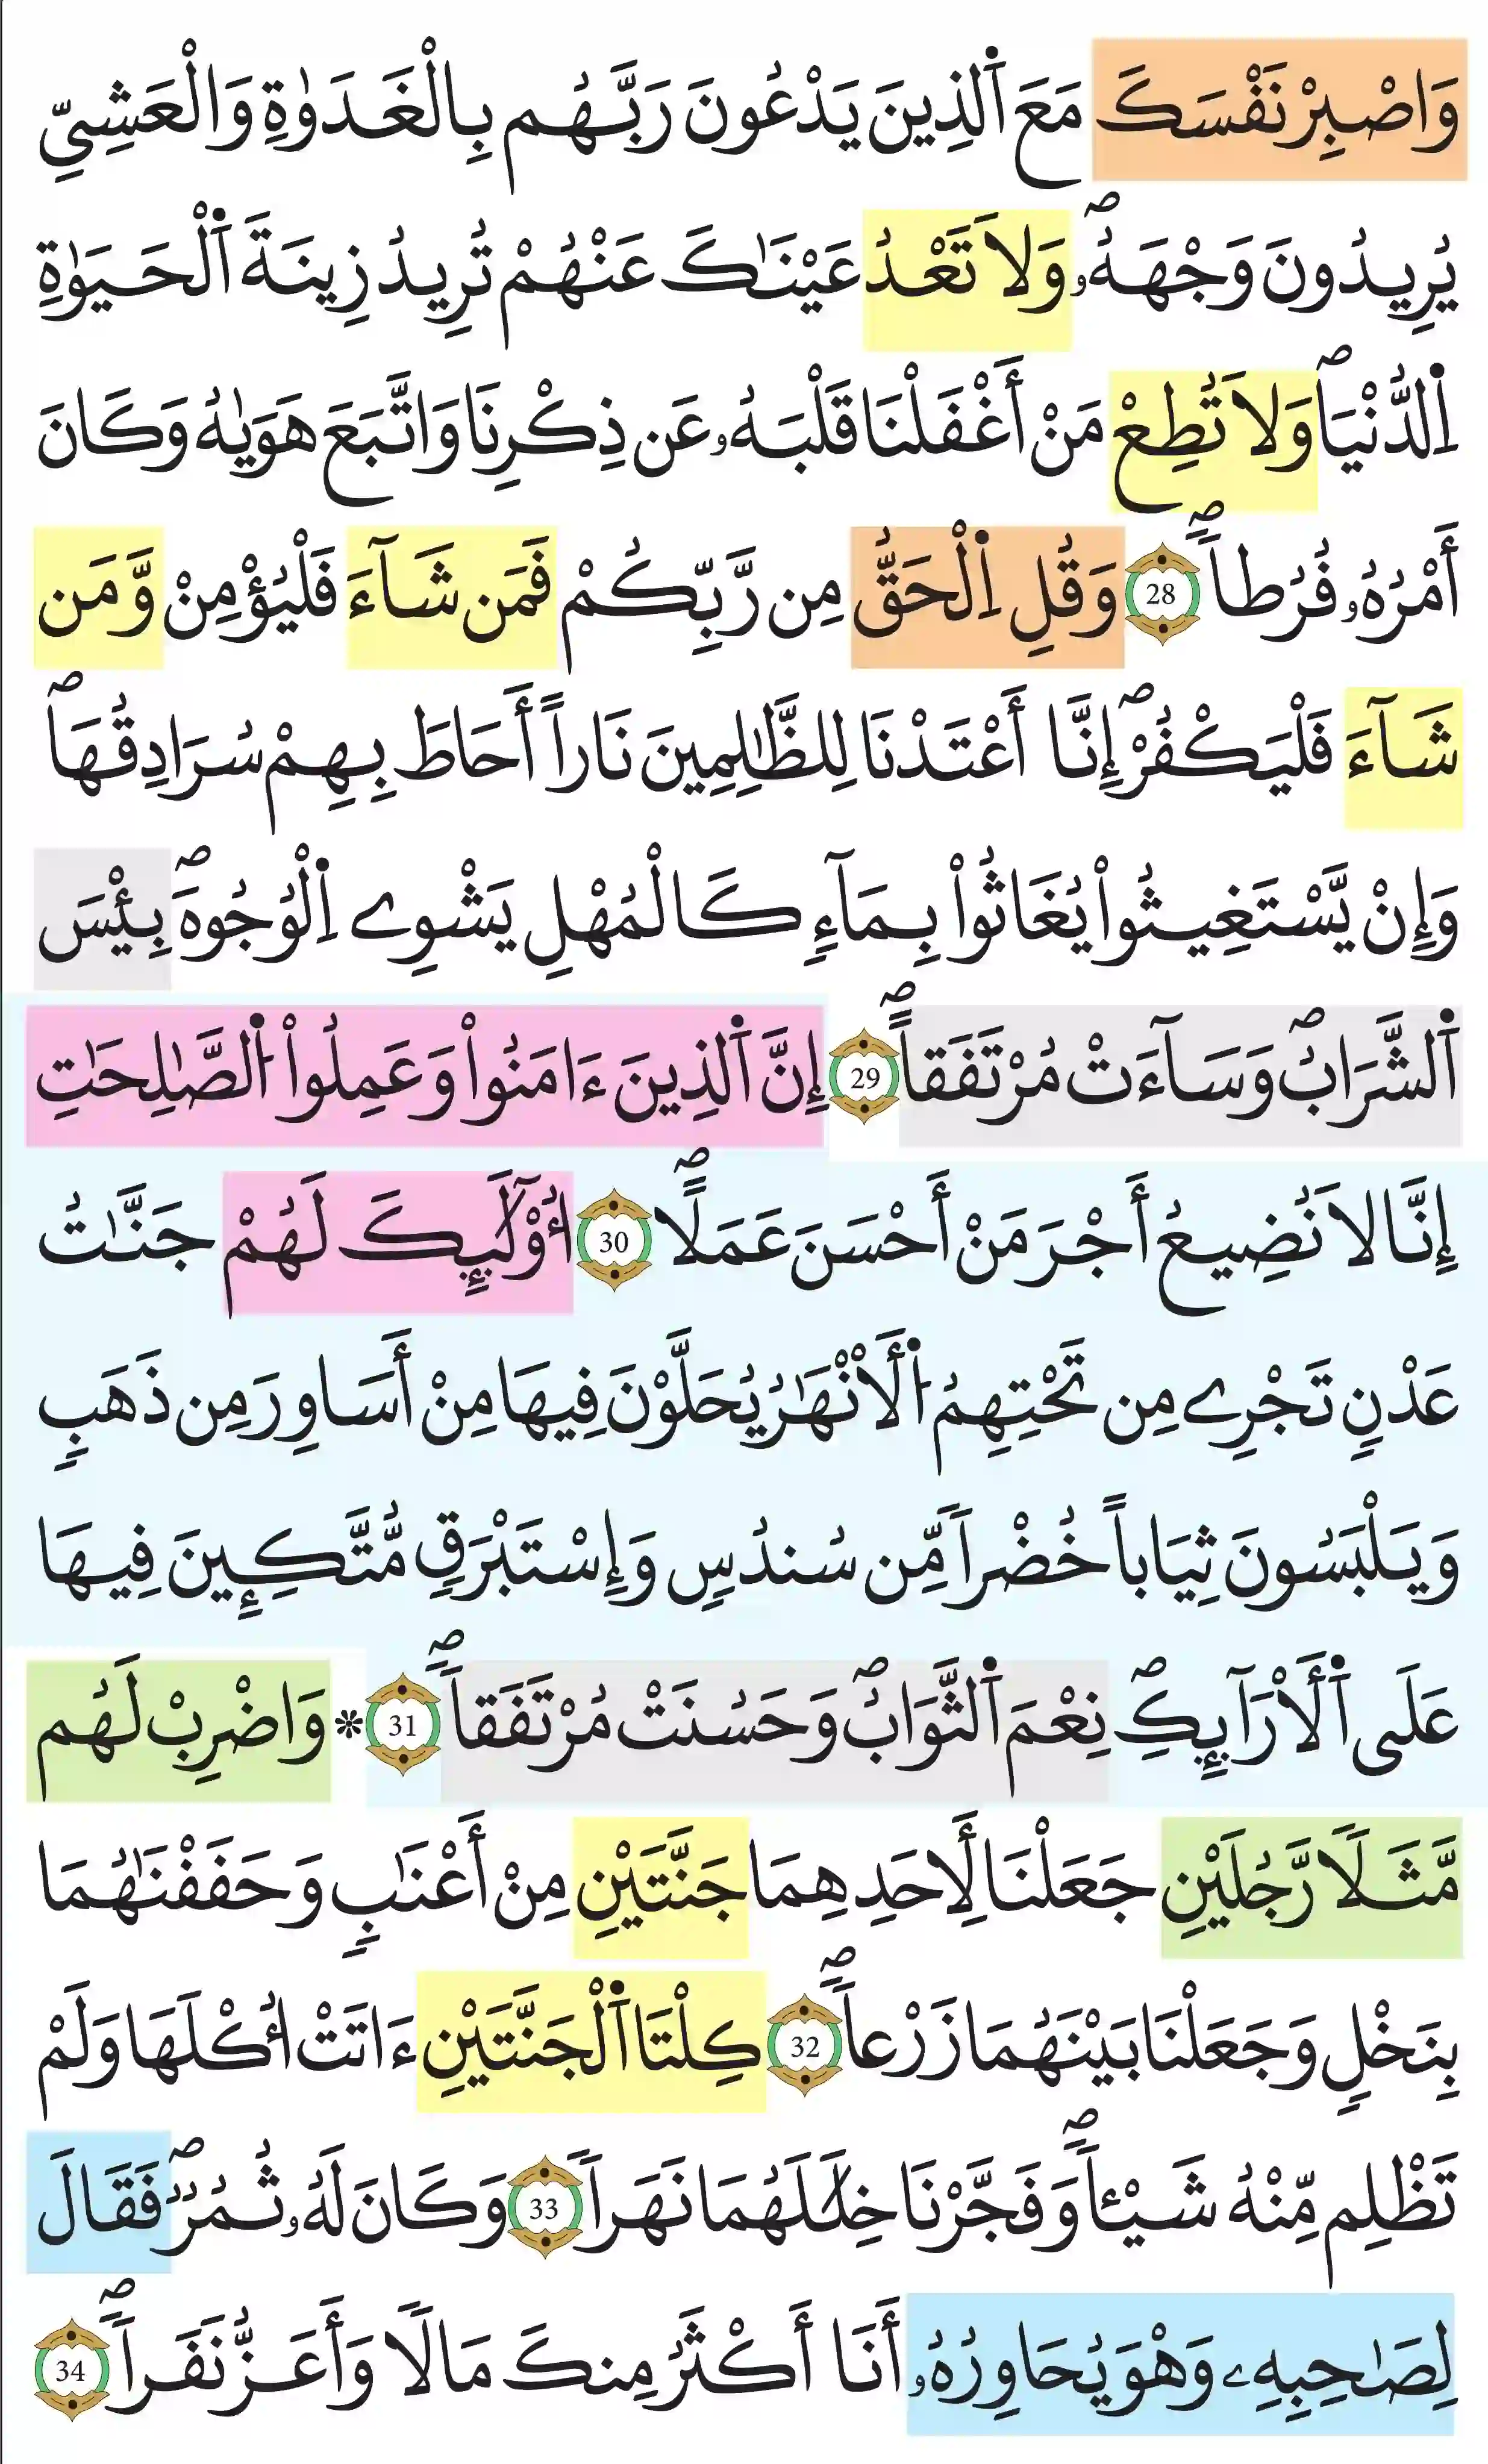 وَاصْبِرْ نَفْسَكَ مَعَ اَ۬لذِينَ يَدْعُونَ رَبَّهُم بِالْغَدَوٰةِ وَالْعَشِيِّ
يُرِيدُونَ وَجْهَهُۥۖ وَلَا تَعْدُ عَيْنَٰكَ عَنْهُمْ تُرِيدُ زِينَةَ اَ۬لْحَيَوٰةِ
اِ۬لدُّنْيَاۖ وَلَا تُطِعْ مَنْ أَغْفَلْنَا قَلْبَهُۥ عَن ذِكْرِنَا وَاتَّبَعَ هَوَيٰهُ وَكَانَ
أَمْرُهُۥ فُرُطاٗۖ 28 وَقُلِ اِ۬لْحَقُّ مِن رَّبِّكُمْ فَمَن شَآءَ فَلْيُؤْمِنْ وَّمَن
شَآءَ فَلْيَكْفُرْۖ إِنَّا أَعْتَدْنَا لِلظَّٰلِمِينَ نَاراً أَحَاطَ بِهِمْ سُرَادِقُهَاۖ
وَإِنْ يَّسْتَغِيثُواْ يُغَاثُواْ بِمَآءٖ كَالْمُهْلِ يَشْوِے اِ۬لْوُجُوهَۖ بِئْسَ
اَ۬لشَّرَابُۖ وَسَآءَتْ مُرْتَفَقاًۖ 29 إِنَّ اَ۬لذِينَ ءَامَنُواْ وَعَمِلُواْ اُ۬لصَّٰلِحَٰتِ
إِنَّا لَا نُضِيعُ أَجْرَ مَنْ أَحْسَنَ عَمَلًاۖ 30 اُوْلَٰٓئِكَ لَهُمْ جَنَّٰتُ
عَدْنٖ تَجْرِے مِن تَحْتِهِمُ اُ۬لْأَنْهَٰرُ يُحَلَّوْنَ فِيهَا مِنْ أَسَاوِرَ مِن ذَهَبٖ
وَيَلْبَسُونَ ثِيَاباً خُضْراٗ مِّن سُندُسٖ وَإِسْتَبْرَقٖ مُّتَّكِـِٕينَ فِيهَا
عَلَى اَ۬لْأَرَآئِكِۖ نِعْمَ اَ۬لثَّوَابُۖ وَحَسُنَتْ مُرْتَفَقاٗۖ 31 ۞ وَاضْرِبْ لَهُم
مَّثَلاٗ رَّجُلَيْنِ جَعَلْنَا لِأَحَدِهِمَا جَنَّتَيْنِ مِنْ أَعْنَٰبٖ وَحَفَفْنَٰهُمَا
بِنَخْلٖ وَجَعَلْنَا بَيْنَهُمَا زَرْعاٗۖ 32 كِلْتَا اَ۬لْجَنَّتَيْنِ ءَاتَتْ اُكْلَهَا وَلَمْ
تَظْلِم مِّنْهُ شَيْـٔاٗۖ وَفَجَّرْنَا خِلَٰلَهُمَا نَهَراٗ 33 وَكَانَ لَهُۥ ثُمُرٞۖ فَقَالَ
لِصَٰحِبِهِۦ وَهْوَ يُحَاوِرُهُۥ أَنَا أَكْثَرُ مِنكَ مَالاٗ وَأَعَزُّ نَفَراٗۖ 34